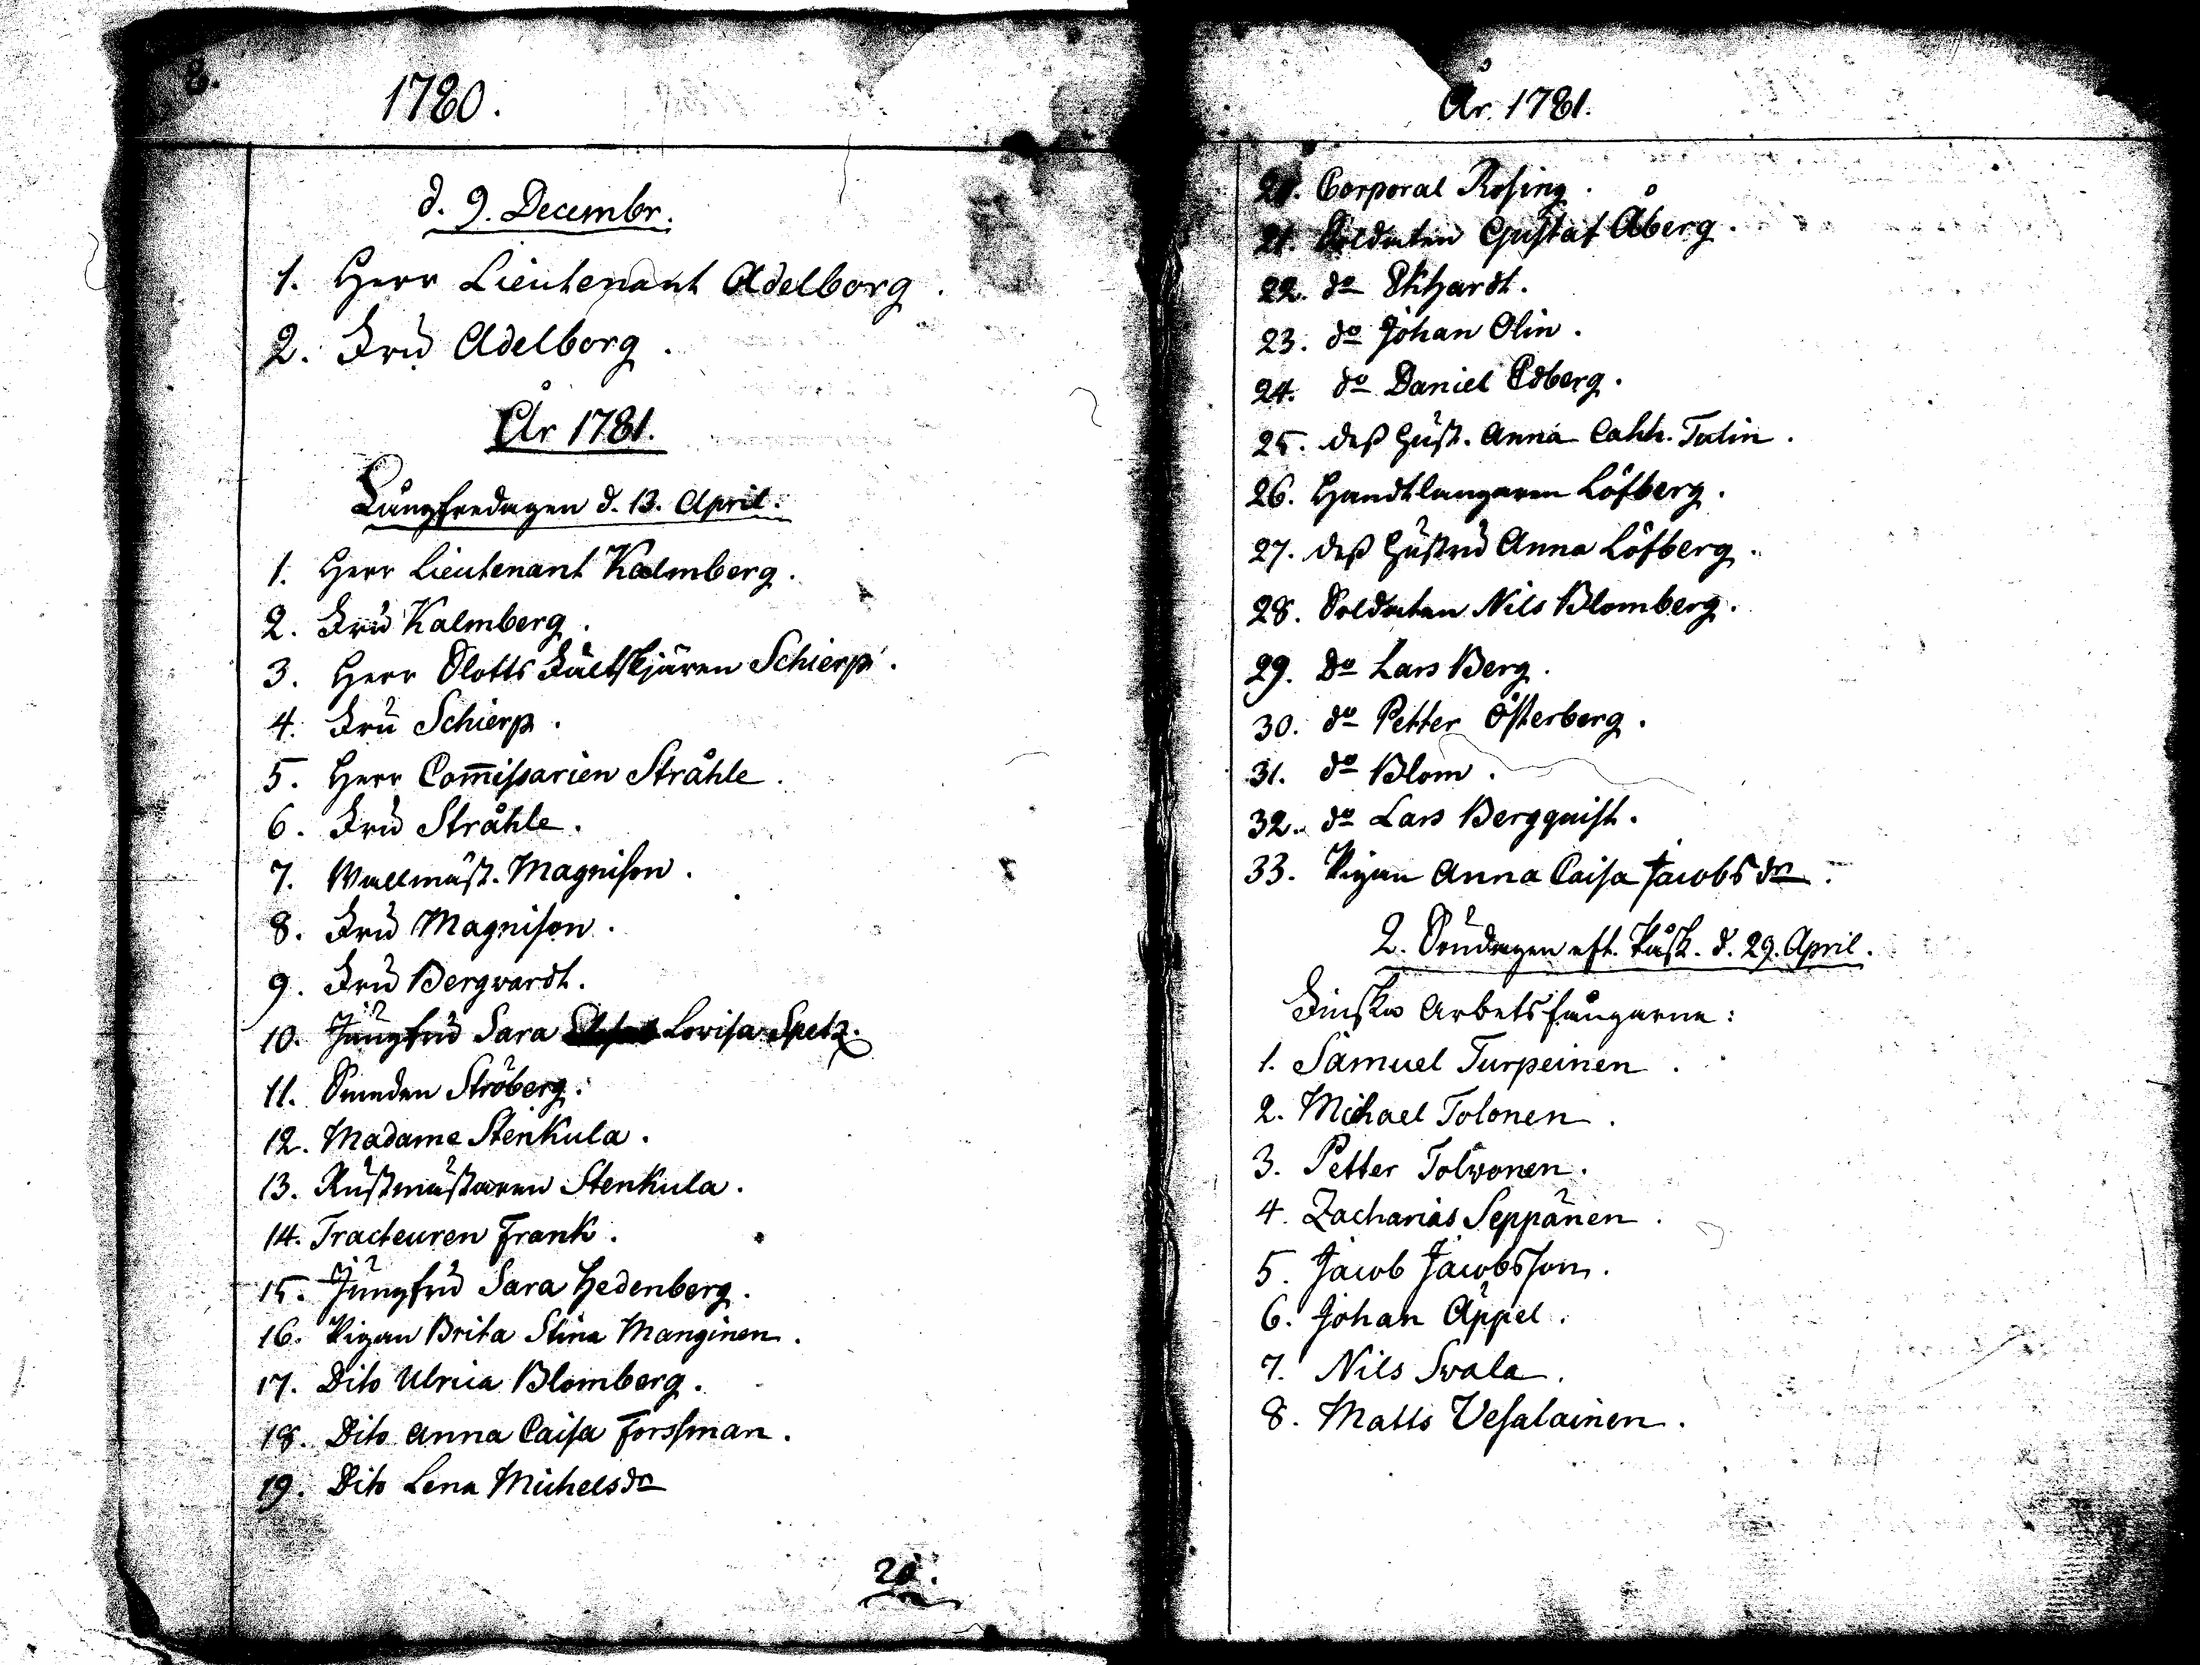 8.
1780.
d. 9. Decembr.
1. Herr Lieutenant Adelborg.
2. Fru Adelborg.
År 1781.
Långfredagen d. 13. April.
1. Herr Lieutenant Kalmberg.
2. Fru Kalmberg.
3. Herr Slotts Fältskjären Schierp.
4. Fru Schierp.
5. Herr Com̅issarien Stråhle.
6. Fru Stråhle.
7. Wallmäst. Magnison.
8. Fru Magnison.
9. Fru Bergwardt.
10. Jungfru Sara Lovisa Spetz.
11. Ströberg.
12. Madame Stenkula.
13. Rustmästaren Stenkula.
14. Tracteuren Frank.
15. Jungfru Sara Hedenberg.
16. Pigan Brita Stina Manginen.
17. Dito Ulrica Blomberg.
18. Dito Anna Caisa Forssman.
19. Dito Lena Michelsdr
20.
År 1781.
20. Corporal Rosing.
21. Soldaten Gustaf Åberg.
22. do Ekhardt.
23. do Johan Olin.
24. do Daniel Edberg.
25. dess hust. Anna Cath. Talin.
26. Handtlangaren Löfberg.
27. dess hustru Anna Löfberg.
28. Soldaten Nils Blomberg.
29. Do Lars Berg.
30. do Petter Österberg.
31. do Blom.
32. do Lars Bergquist.
33. Pigan Anna Caisa Jacobsdr.
2. Söndagen eft. Påsk. d. 29. April.
Finska Arbetsfångarne:
1. Samuel Turpeinen.
2. Michael Tolonen.
3. Petter Tolwonen.
4. Zacharias Seppänen.
5. Jacob Jacobsson.
6. Johan Äppel.
7. Nils Svala.
8. Matts Vesalainen.